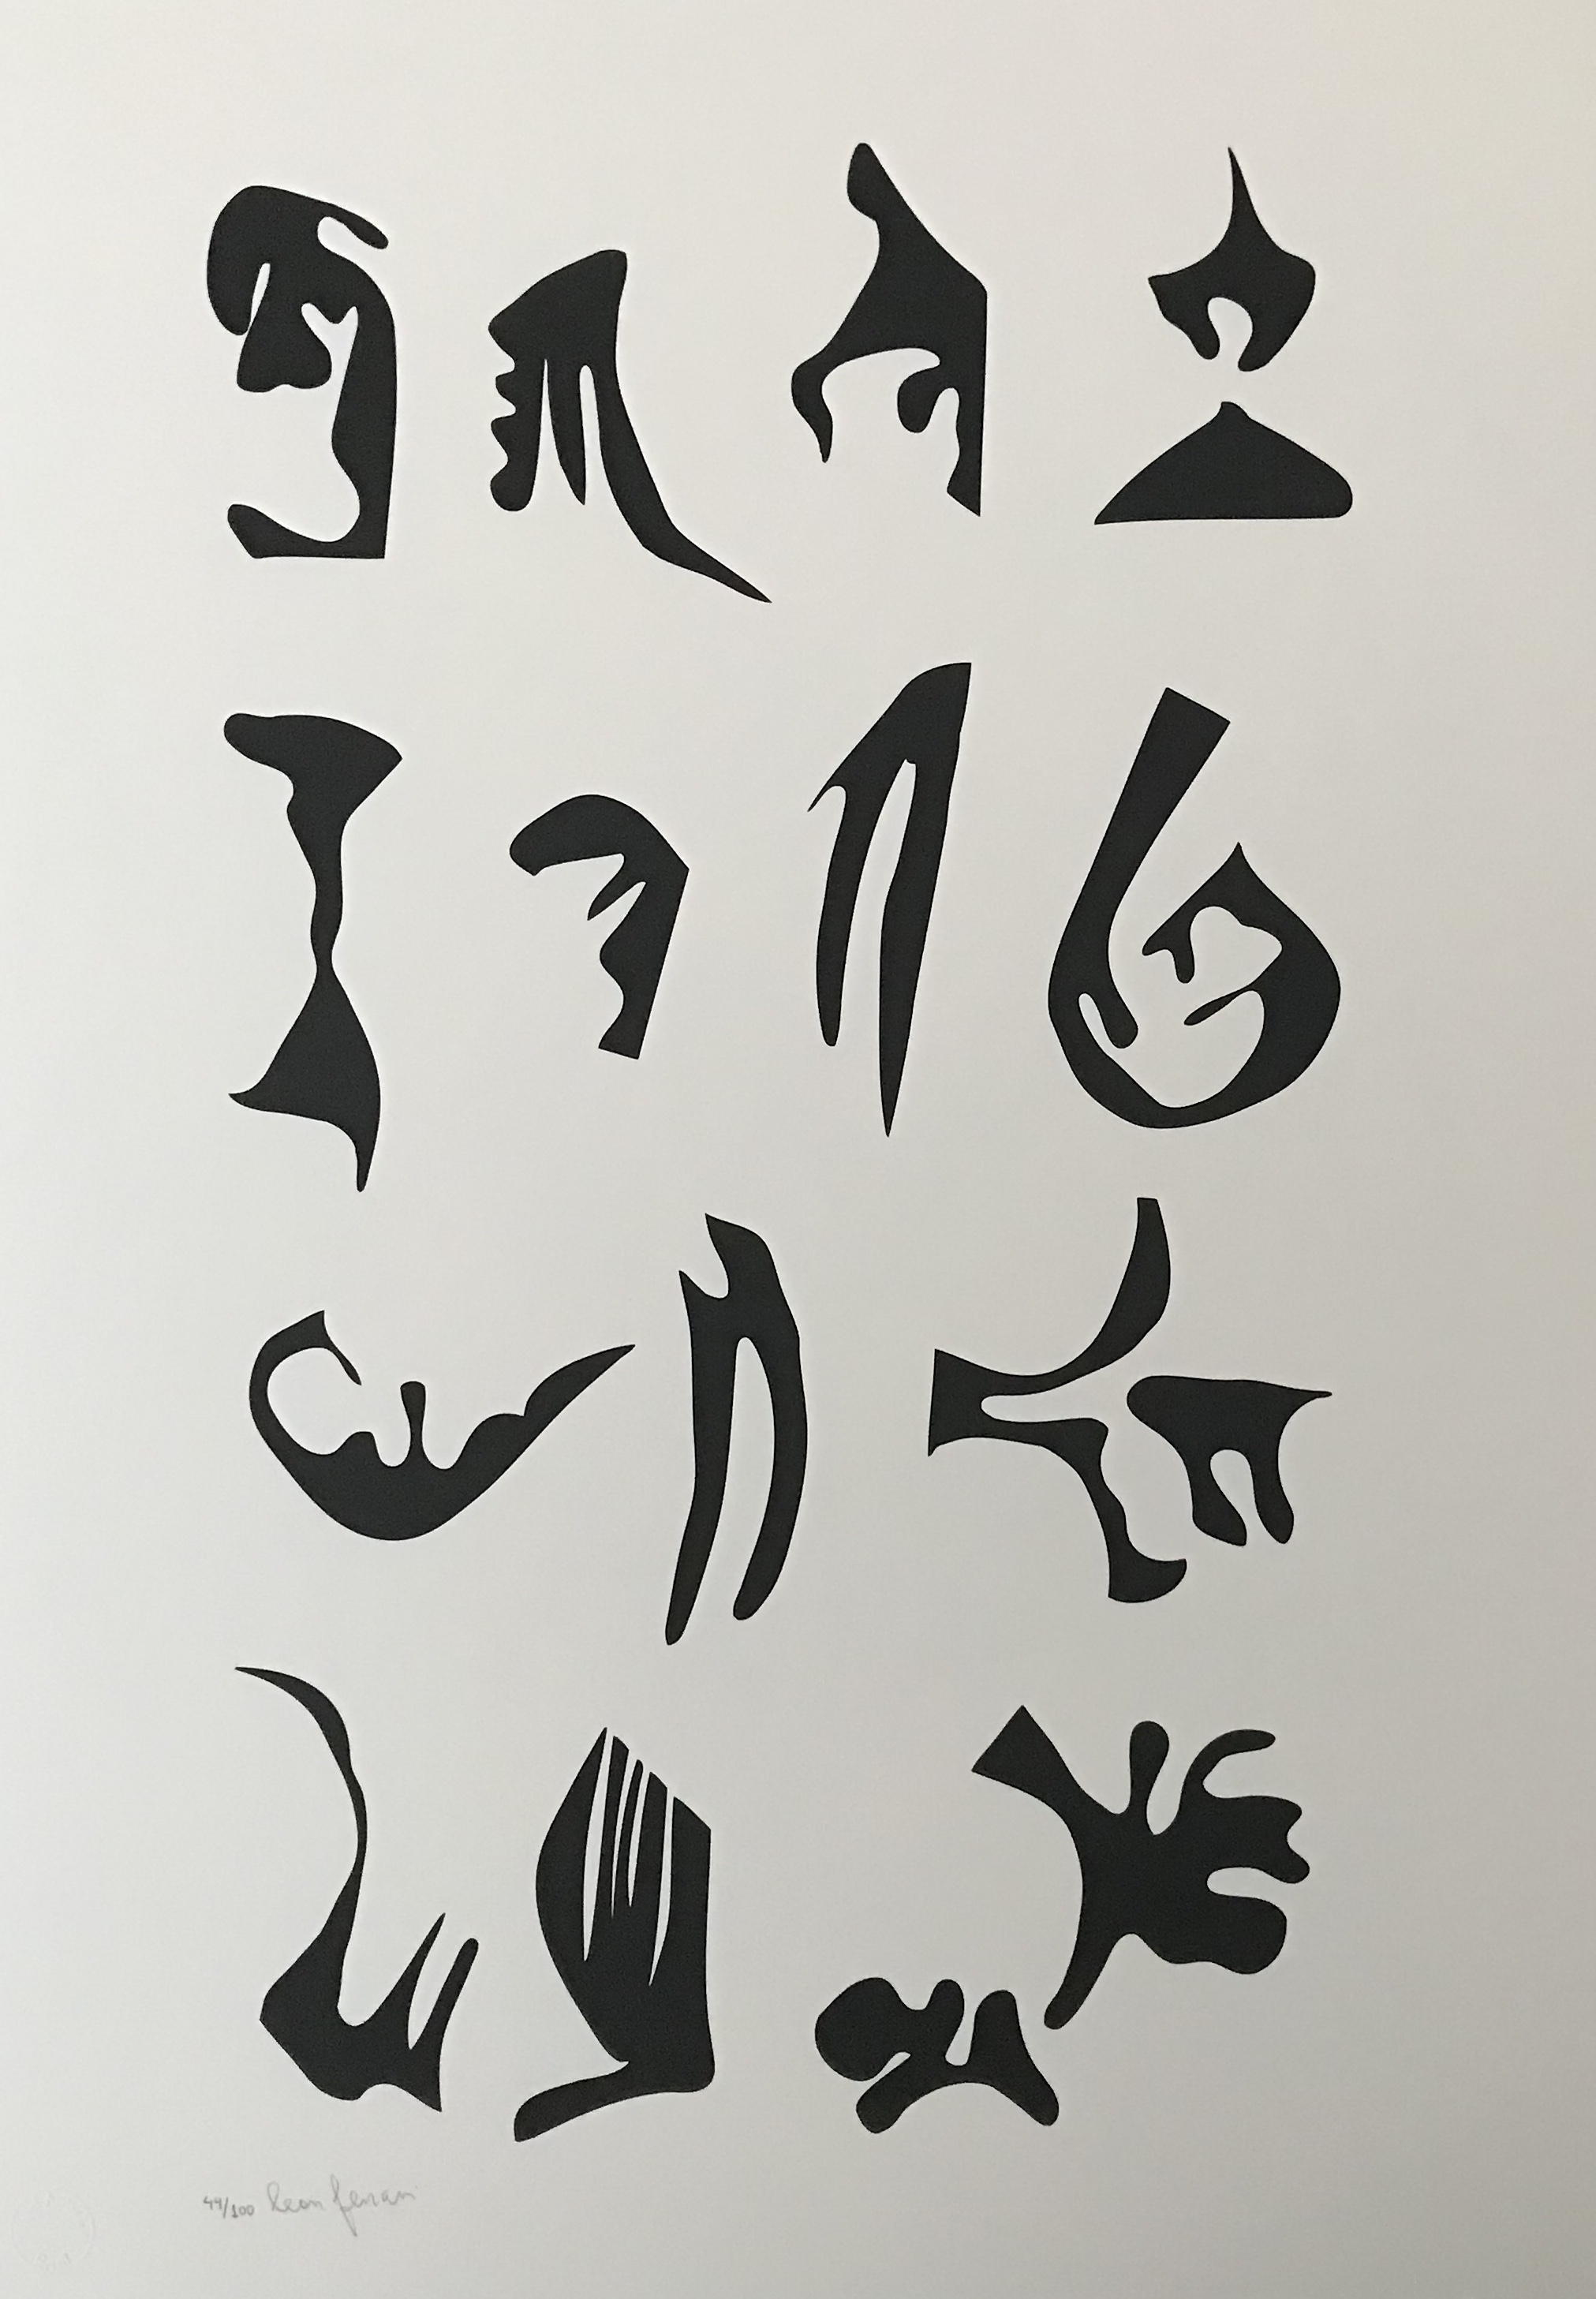 44/100 Leon Ferrari